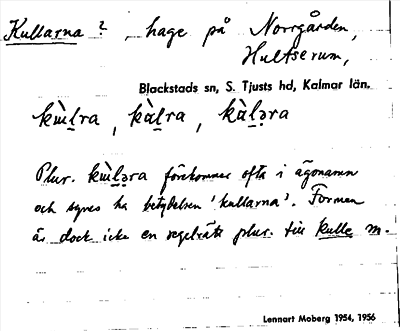 Kullarna ? , hage på Norrgården,
Hultserum,
Blackstads sn, S. Tjusts hd, Kalmar län.
kɯ̀l̠ra , kàl̠ra , kàl̠ǝra
Plur. kɯ̀l̠ǝra förekommer ofta i ägonamn
och synes ha betydelsen 'kullarna'. Formen
är dock icke en regelrätt plur. till kulle m.
Lennart Moberg 1954, 1956